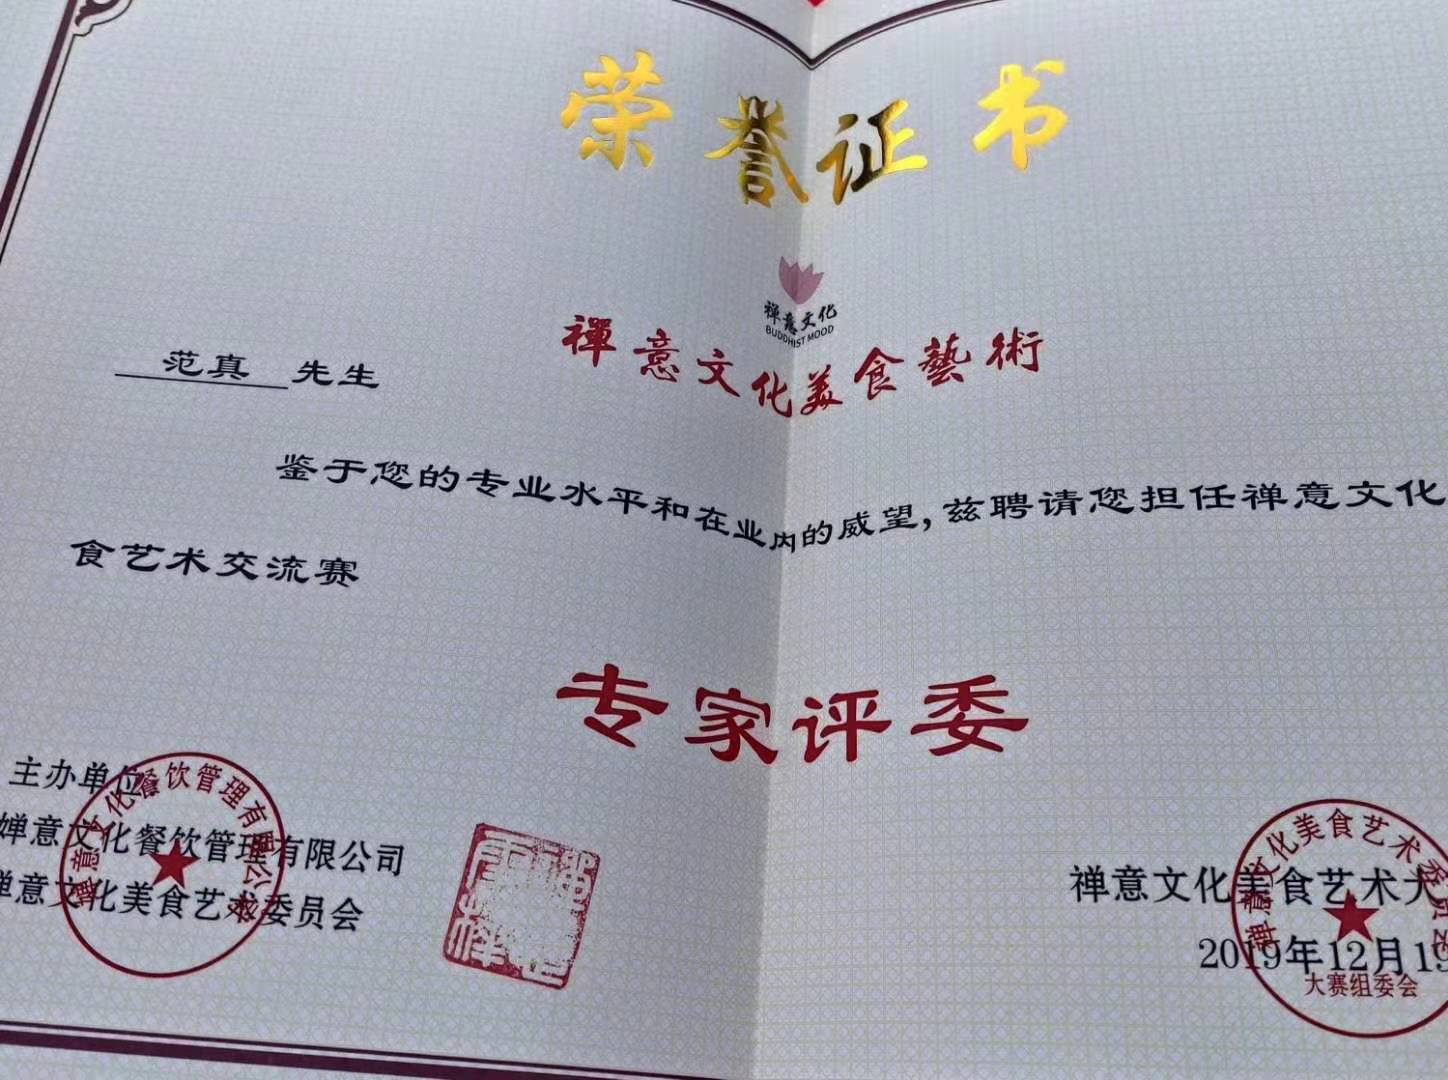 荣誉证书
禅意文化
BUDDHIST MOOD
禪意文化美食藝術
范真 先生
鉴于您的专业水平和在业内的威望，兹聘请您担任禅意文化
食艺术交流赛
专家评委
主办单位
禅意文化餐饮管理有限公司
禅意文化美食艺术委员会
禅意文化餐饮管理有限公司
禅意文化美食艺术大
2019年12月19
禅意文化美食艺术委员会
大赛组委会